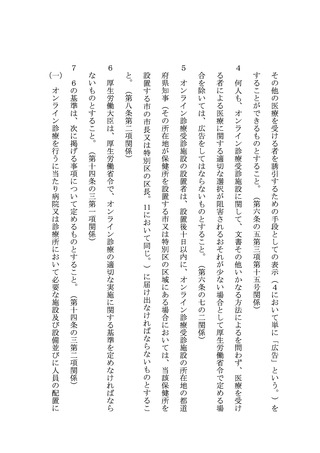 その他の医療を受ける者を誘引するための手段としての表示（４において単に「広告」という。）を
することができるものとすること。（第六条の五第三項第十五号関係）
４　何人も、オンライン診療受診施設に関して、文書その他いかなる方法によるを問わず、医療を受け
る者による医療に関する適切な選択が阻害されるおそれが少ない場合として厚生労働省令で定める場
合を除いては、広告をしてはならないものとすること。（第六条の七の二関係）
５　オンライン診療受診施設の設置者は、設置後十日以内に、オンライン診療受診施設の所在地の都道
府県知事（その所在地が保健所を設置する市又は特別区の区域にある場合においては、当該保健所を
設置する市の市長又は特別区の区長。11において同じ。）に届け出なければならないものとするこ
と。（第八条第二項関係）
６　厚生労働大臣は、厚生労働省令で、オンライン診療の適切な実施に関する基準を定めなければなら
ないものとすること。（第十四条の三第一項関係）
７　６の基準は、次に掲げる事項について定めるものとすること。（第十四条の三第二項関係）
㈠　オンライン診療を行うに当たり病院又は診療所において必要な施設及び設備並びに人員の配置に